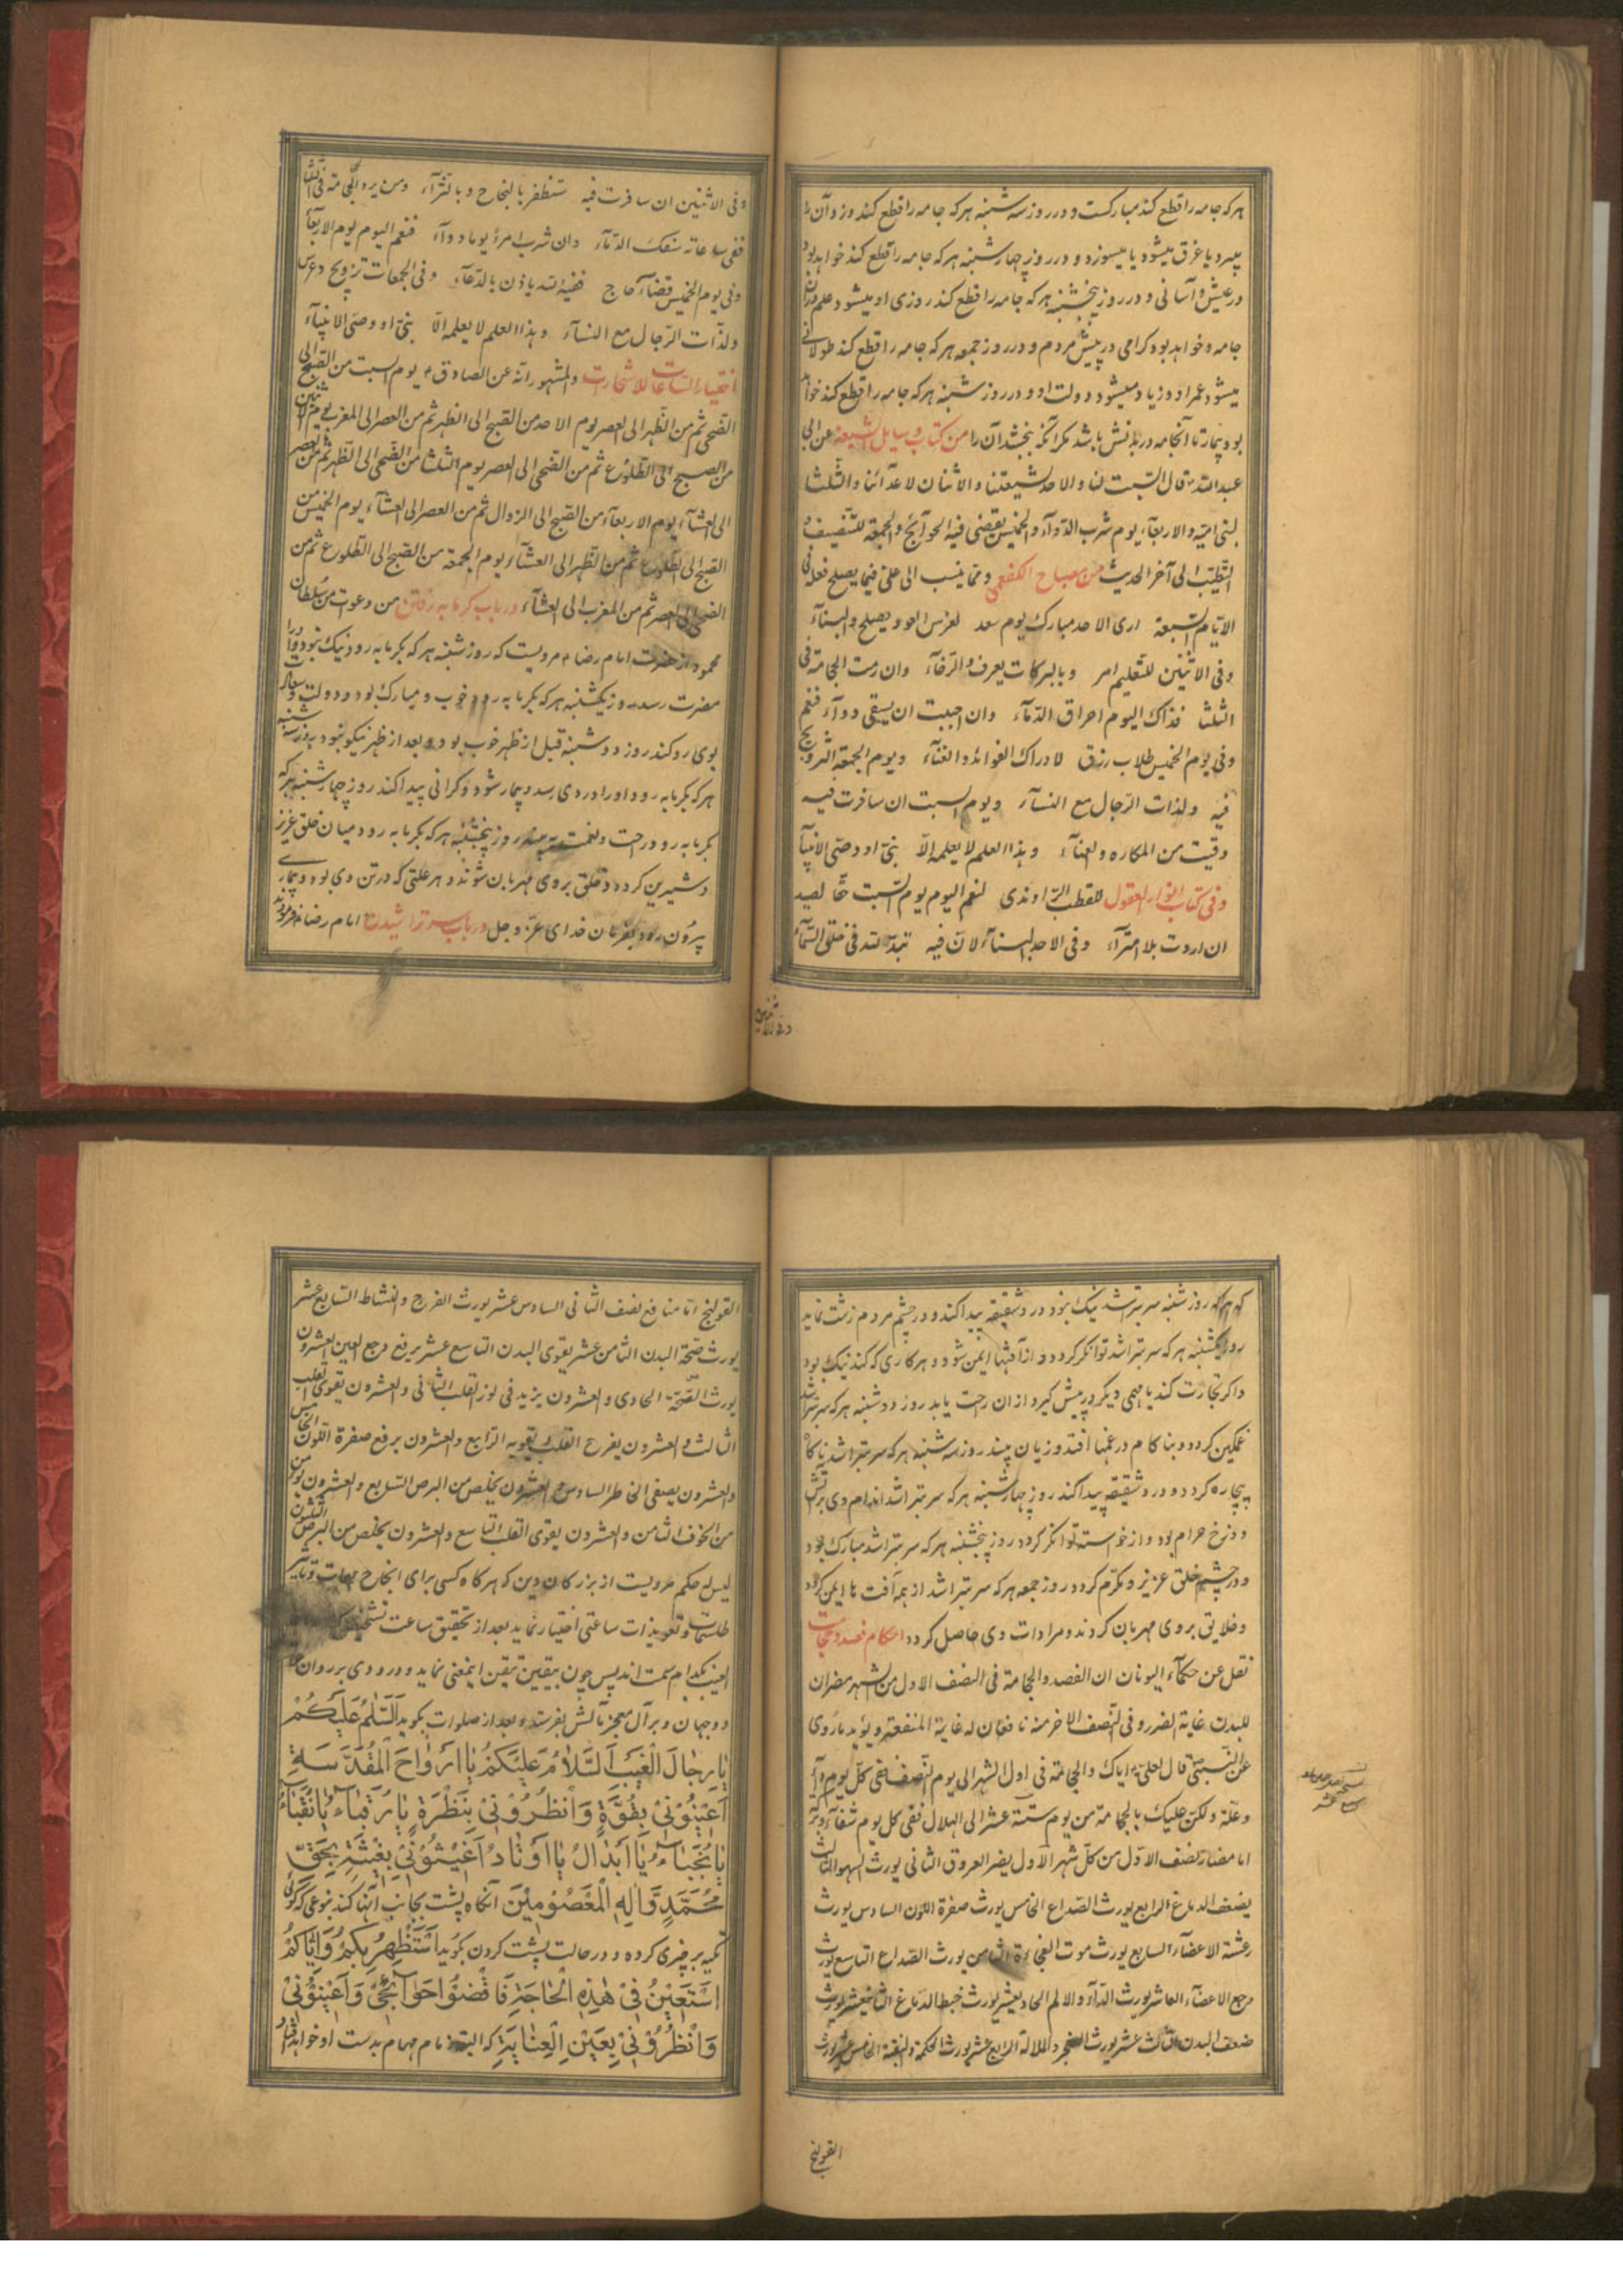 هر که جامه را قطع کند مبارکست و در روز سه شنبه هر که جامه را قطع کند دزد آن را
میبرد یا غرق میشود یا میسوزد و در روز چهارشنبه هر که جامه را قطع کند خواهد بود
در عیش و آسانی و در روز پنجشنبه هر که جامه را قطع کند روزی او میشود علم در آن
جامه و خواهد بود کرامی در پیش مردم و در روز جمعه هر که جامه را قطع کند طولانی
میشود عمر او و زیاد میشود دولت او و در روز شنبه هر که جامه را قطع کند خواهد
بود بیمار تا آنجامه در بدنش باشد مکر آنکه بخشد آن را من کتاب وسایل الشیعة عن ابی
عبدالله قال السبت لنا و الاحد لشیعتنا و الاثنان لاعدائنا و الثلثا
لبنی امیه و الاربعاء یوم شرب الدوآء و الخمیس یقضی فیه الحوآئج و الجمعة للتنصیف و
التطیب الی آخر الحدیث من مصباح الکفعمی و مما ینسب الی علی فیما یصلح فعله فی
الایام السبعة اری الاحد مبارک یوم سعد لغرس العود یصلح و البنآء
و فی الاثنین للتعلیم امر و بالبرکات یعرف و الرفآء و ان رمت الحجامة فی
الثلثا فذاک الیوم احراق الدمآء و ان احببت ان یسقی دوآء فنعم
و فی یوم الخمیس طلاب رزق لادراک الفوائد و الغنآء و یوم الجمعة التزویج
فیه و لذات الرجال مع النسآء و یوم السبت ان سافرت فیه
وقیت من المکاره و العنآء و هذا العلم لا یعلمه الا نبی او وصی الانبیآ
و فی کتاب انوار العقول للقطب الراوندی لنعم الیوم یوم السبت حقا لصید
ان اردت بلا امترآء و فی الاحد البنآء لان فیه تبدآ الله فی خلق السمآء
و فی الاثنین
و فی الاثنین ان سافرت فیه ستظفر بالنجاح و بالثرآء و من یرد الحجامة فی الثلثا
ففی ساعاته سفک الدمآء و ان شرب امرء یوما دوآء فنعم الیوم یوم الاربعآء
و فی یوم الخمیس قضآء حاج ففیه الله یاذن بالدعآء و فی الجمعات تزویج و عرس
و لذات الرجال مع النسآء و هذا العلم لا یعلمه الا نبی او وصی الانبیآء
اختیار الساعات للاستخارات و المشهور انه عن الصادق یوم السبت من الصبح الی
الضحی ثم من الظهر الی العصر یوم الاحد من الصبح الی الظهر ثم من العصر الی المغرب یوم الاثنین
من الصبح الی الطلوع ثم من الضحی الی العصر یوم الثلثا من الضحی الی الظهر ثم من العصر
الی العشآء یوم الاربعآء من الصبح الی الزوال ثم من العصر الی العشآء یوم الخمیس من
الصبح الی الطلوع ثم من الظهر الی العشآء یوم الجمعة من الصبح الی الطلوع ثم من
الضحی الی العصر ثم من المغرب الی العشآء در باب کرمابه رفتن من دعوات من سلطان
محمود از حضرت امام رضا مرویست که روز شنبه هر که بکرمابه رود نیک نبود و او را
مضرت رسد روز یکشنبه هر که بکرمابه رود خوب و مبارک بود و دولت و سعادت
بوی رو کند روز دوشنبه قبل از ظهر خوب بود و بعد از ظهر نیکو نبود روز سه شنبه
هر که بکرمابه رود او را دردی رسد و بیمار شود و کرانی پیدا کند روز چهارشنبه هر که
بکرمابه رود راحت و نعمت بیند روز پنجشنبه هر که بکرمابه رود میان خلق عزیز
و شیرین کردد و خلق بروی مهربان شوند و هر علتی که در تن وی بود و بیماری
بیرون رود بفرمان خدای عز و جل در باب سر تراشیدن امام رضا فرموده
که هر که روز شنبه سر بتراشد نیک نبود درد شقیقه پیدا کند و در چشم مردم زشت نماید
روز یکشنبه هر که سر بتراشد توانکر کردد و از آفتها ایمن شود و هر کاری که کند نیک بود
و اکر تجارت کند یا مهمی دیکر در پیش کیرد از ان راحت یابد روز دوشنبه هر که سر بتراشد
غمکین کردد و بناکام در غمها افتد و زیان بیند روز سه شنبه هر که سر بتراشد بناکام
بیچاره کردد و درد شقیقه پیدا کند روز چهارشنبه هر که سر بتراشد اندام وی بر آتش
دوزخ حرام بود و از خواسته توانکر کردد روز پنجشنبه هر که سر بتراشد مبارک بود
و در چشم خلق عزیز و مکرم کردد روز جمعه هر که سر بتراشد از همه آفت ها ایمن کردد
و خلایق بروی مهربان کردند و مرادات وی حاصل کردد احکام فصد و حجامت
نقل عن حکمآء الیونان ان الفصد و الحجامة فی النصف الاول من الشهر مضران
للبدن غایة الضرر و فی النصف الاخر منه نافعان له غایة المنفعة و یؤید ما روی
عن النبی قال لعلی ایاک و الحجامة فی اول الشهر الی یوم النصف ففی کل یوم دآء
و علة و لکن علیک بالحجامة من یوم ستة عشر الی الهلال ففی کل یوم شفآء و برکة
اما مضار نصف الاول من کل شهر الاول یضر العروق الثانی یورث السهو الثالث
یضعف الدماغ الرابع یورث الصداع الخامس یورث صفرة اللون السادس یورث
رعشة الاعضآء السابع یورث موت الفجاءة الثامن یورث الصداع التاسع یورث
وجع الاعضآء العاشر یورث الدآء و الالم الحادیعشر یورث خبط الدماغ الثانیعشر یورث
ضعف البدن الثالث عشر یورث الضجر و الملالة الرابع عشر یورث الحکة الخامس عشر یورث
القولنج
القولنج اما منافع نصف الثانی السادس عشر یورث الفرح و النشاط السابع عشر
یورث صحة البدن الثامن عشر یقوی البدن التاسع عشر یرفع وجع العین العشرون
یورث الصحة الحادی و العشرون یزید فی نور القلب الثانی و العشرون یقوی القلب
الثالث و العشرون یفرح القلب و یقویه الرابع و العشرون یرفع صفرة اللون الخامس
و العشرون یصفی الخاطر السادس و العشرون یخلص من البرص السابع و العشرون یؤمن
من الخوف الثامن و العشرون یقوی القلب التاسع و العشرون یخلص من البرص الثلثون
لیس له حکم مرویست از بزرکان دین که هر کاه کسی برای انجاح مهمات و تاثیر
طلسمات و تعویذات ساعتی اختیار نماید بعد از تحقیق ساعت تشخیص
الغیب بکدام سمت اند پس چون بیقین تیقن اینمعنی نماید درودی بر روان
دو جهان و بر آل معجز مآلش بفرستد و بعد از صلوات بکوید اَلسَّلٰامُ عَلَیْکُمْ
یٰا رِجٰالَ الْغَیْبِ اَلسَّلٰامُ عَلَیْکُمْ یٰا اَرْوٰاحَ الْمُقَدَّسَةِ
اَعِینُوْنِیْ بِقُوَّةٍ وَ انْظُرُوْنِیْ بِنَظْرَةٍ یٰا رُقَبٰاءُ یٰا نُقَبٰاءُ
یٰا نُجَبٰاءُ یٰا اَبْدٰالُ یٰا اَوْتٰادُ اَغِیْثُوْنِیْ بِغَیْثَةٍ بِحَقِّ
مُحَمَّدٍ وَّ اٰلِهِ الْمَعْصُوْمِیْنَ آنکاه پشت بجانب آنها کند بنوعی که کوئی
تکیه بر چیزی کرده و در حالت پشت کردن بکوید اَسْتَظْهِرُ بِکُمْ وَ اِیّٰاکُمْ
اَسْتَعِیْنُ فِیْ هٰذِهِ الْحٰاجَةِ فَاقْضُوْا حَوٰآئِجِیْ وَ اَعِیْنُوْنِیْ
وَ انْظُرُوْنِیْ بِعَیْنِ الْعِنٰایَةِ که البته زمام مهام بدست او خواهد افتاد